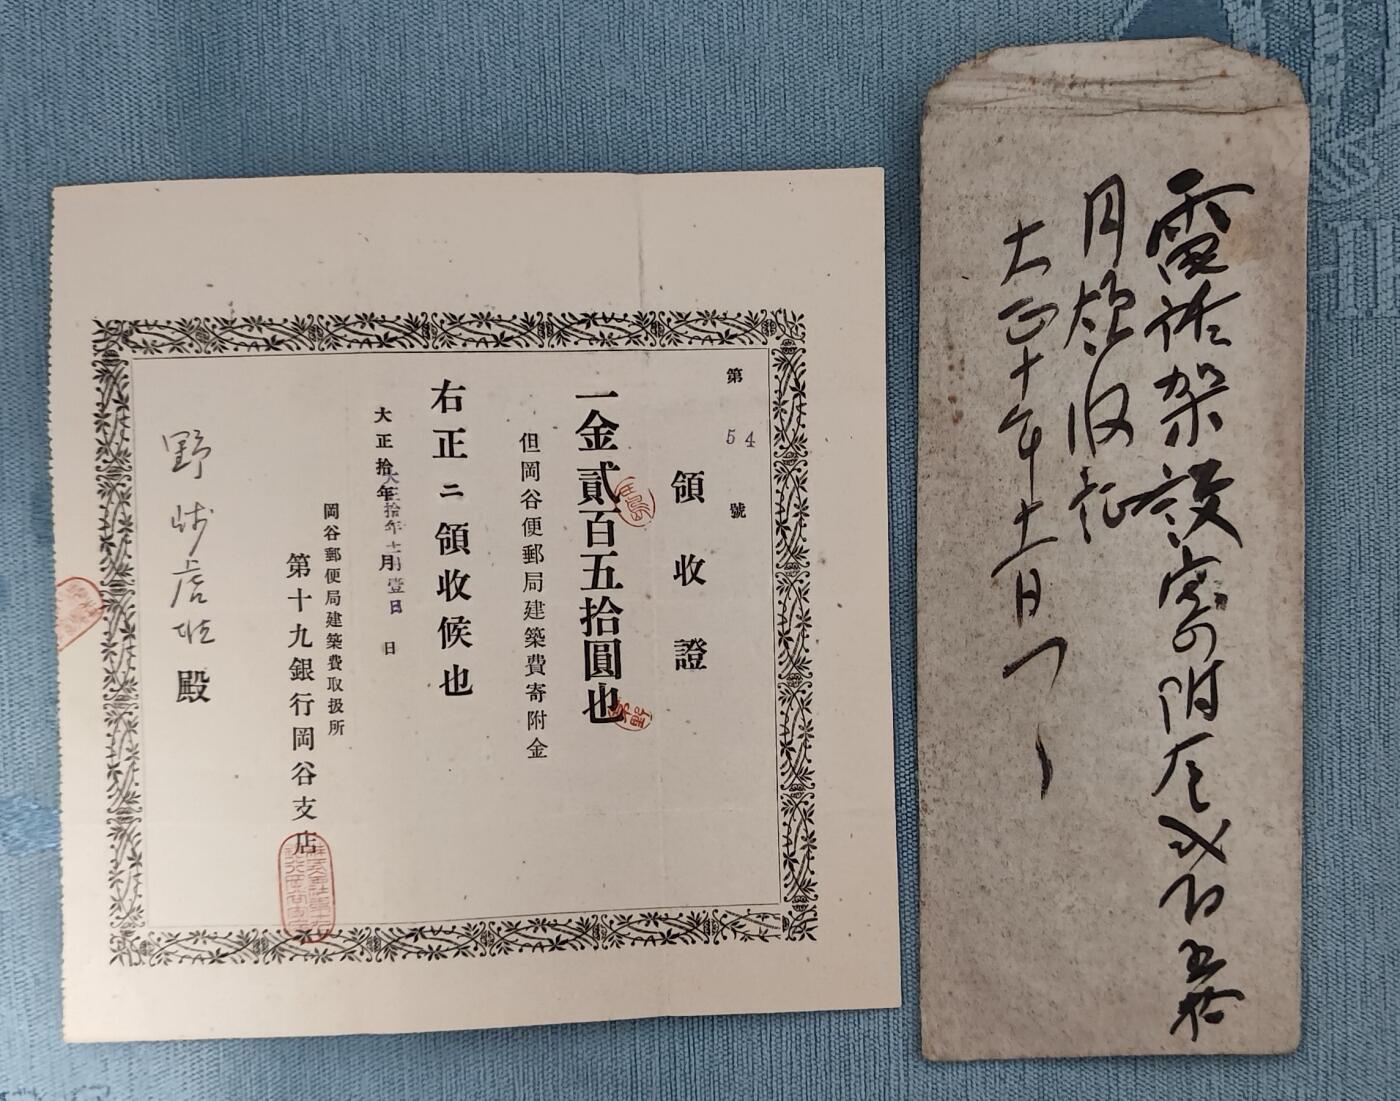 電話架設寄附金弐百五拾
円領収証
大正十年十一月一日
第54號
領收證
一金貳百五拾圓也
但岡谷便郵局建築費寄附金
右正ニ領收候也
大正拾年 月 日
大正拾年十一月壹日
岡谷郵便局建築費取扱所
第十九銀行岡谷支店
殿